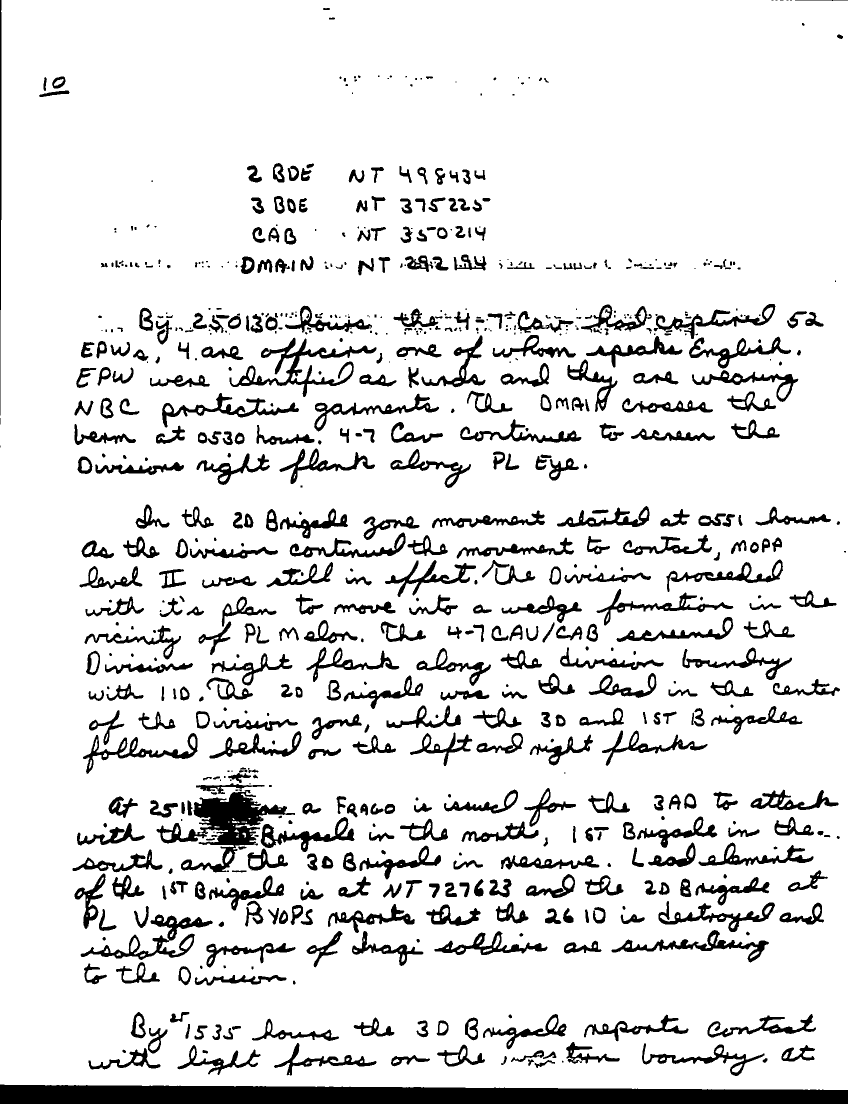 10
2 BDE NT 498434
3 BDE NT 375225
CAB NT 350214
DMAIN NT 292194
By 250130 hours the 4-7 Cav had captured 52
EPWs, 4 are officers, one of whom speaks English.
EPW were identified as Kurds and they are wearing
NBC protective garments. The DMAIN crosses the
berm at 0530 hours. 4-7 Cav continues to screen the
Divisions right flank along PL Eye.
In the 2D Brigade zone movement started at 0551 hours.
As the Division continued the movement to contact, MOPP
level II was still in effect. The Division proceeded
with it's plan to move into a wedge formation in the
vicinity of PL Melon. The 4-7 CAV/CAB screened the
Divisions right flank along the division boundry
with 1ID. The 2D Brigade was in the lead in the center
of the Division zone, while the 3D and 1ST Brigades
followed behind on the left and right flanks
At a FRAGO is issued for the 3AD to attack
with the Brigade in the north, 1ST Brigade in the
south, and the 3D Brigade in reserve. Lead elements
of the 1ST Brigade is at NT 727623 and the 2D Brigade at
PL Vegas. BYOPS reports that the 26 ID is destroyed and
isolated groups of Iraqi soldiers are surrendering
to the Division.
By 25 1535 hours the 3D Brigade reports contact
with light forces on the boundry. At